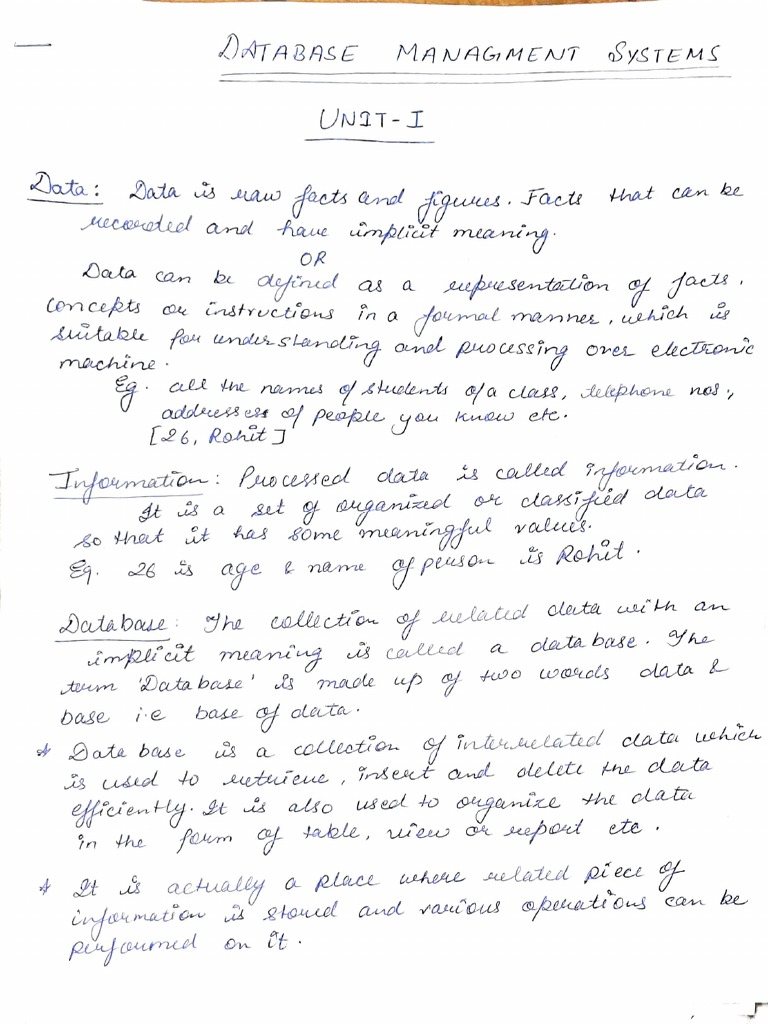 DATABASE MANAGMENT SYSTEMS
UNIT-I
Data: Data is raw facts and figures. Facts that can be
recorded and have implicit meaning.
OR
Data can be defined as a representation of facts,
concepts or instructions in a formal manner, which is
suitable for understanding and processing over electronic
machine.
Eg. all the names of students of a class, telephone nos.,
addresses of people you know etc.
[26, Rohit]
Information: Processed data is called information.
It is a set of organized or classified data
so that it has some meaningful values.
Eg. 26 is age & name of person is Rohit.
Database: The collection of related data with an
implicit meaning is called a database. The
term 'Database' is made up of two words data &
base i.e base of data.
* Database is a collection of interrelated data which
is used to retrieve, insert and delete the data
efficiently. It is also used to organize the data
in the form of table, view or report etc.
* It is actually a place where related piece of
information is stored and various operations can be
performed on it.